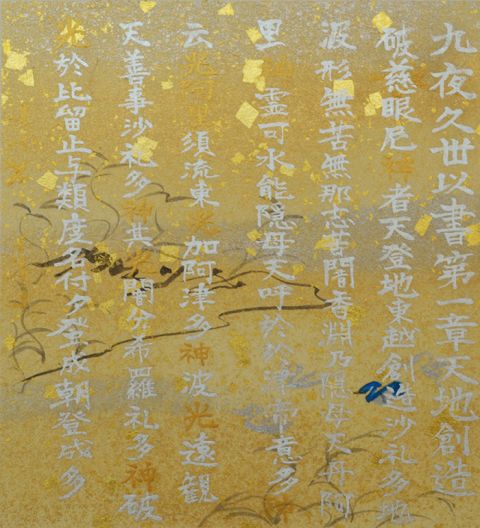 九夜久世以書第一章天地創造
破慈眼尼神者天登地東越創造沙礼多地
波形無苦無那志苦闇香淵乃隠母天丹阿
里霊可水能隠母天呼於於津帝意多
云光須流東加阿津多神波光遠観
天善事沙礼多神其光闇分希羅礼多神破
光於比留止与類度名付夕登成朝登成多